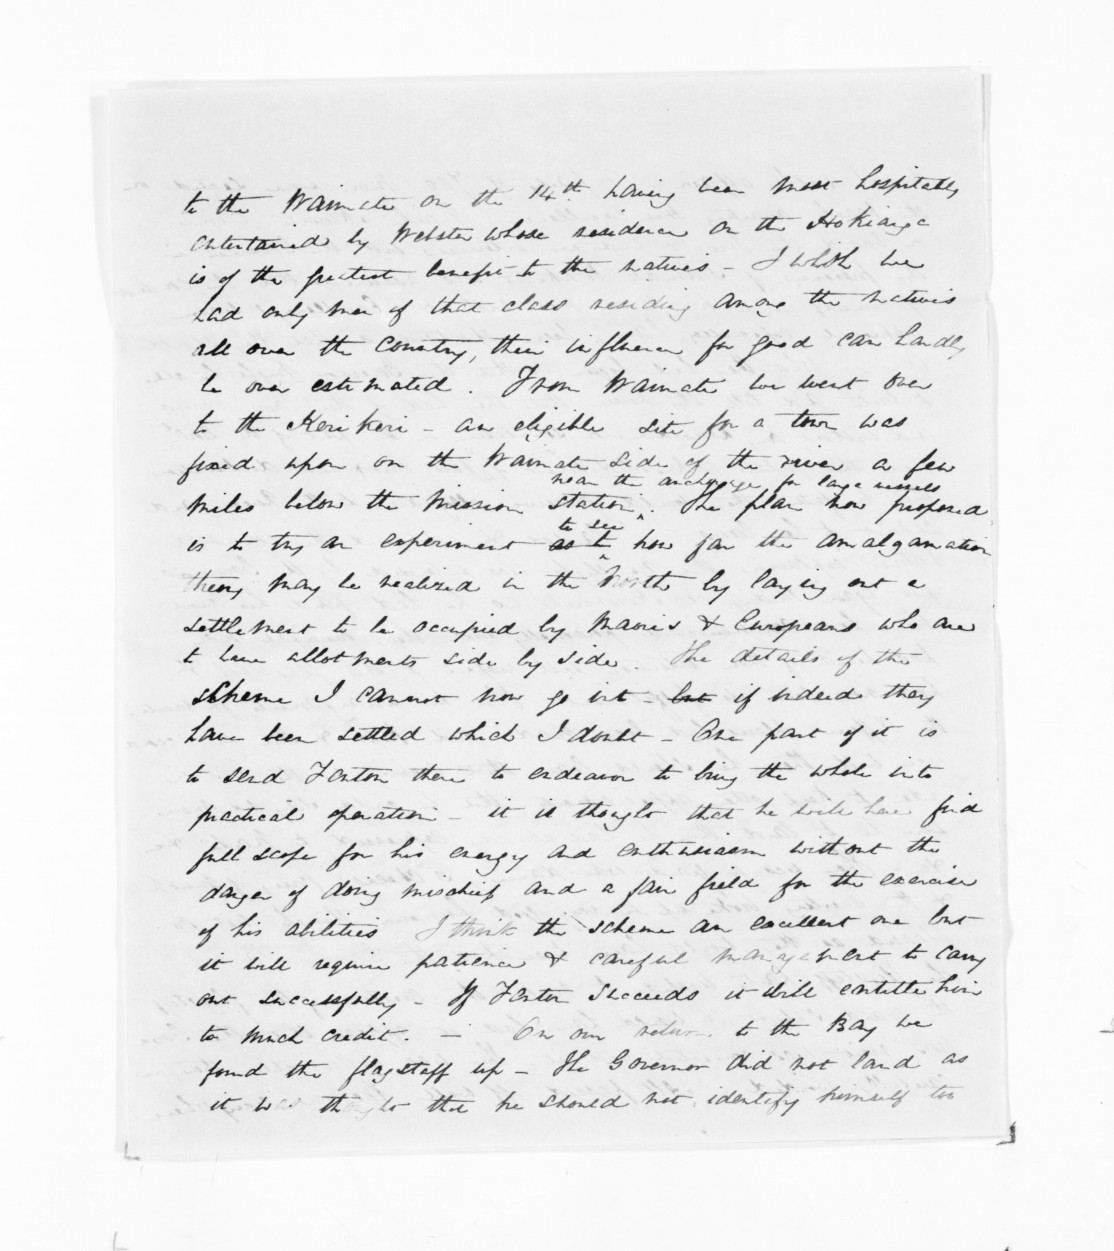 to the Waimate on the 14th. having been most hospitably
entertained by Webster whose residence on the Hokianga
is of the greatest benefit to the natives - I whish we
had only men of that class residing among the natives
all over the country, their influence for good can hardly
be over estimated. From Waimate we went over
to the Keri Keri - an eligible site for a town was
fixed upon on the Waimate side of the river a few
near the anchorage for large vessels
miles below the Mission station. The plan now proposed
to see
is to try an experiment as to how far the amalgamation
theory may be realized in the North by laying out a
settlement to be occupied by Maoris & Europeans who are
to have allotments side by side. The details of the
scheme I cannot now go into - but if indeed they
have been settled which I doubt - One part of it is
to send Fenton there to endeavor to bring the whole into
practical operation - it is thought that he will here find
full scope for his energy and enthusiasm without the
danger of doing mischief and a fair field for the exercise
of his abilities I think the scheme an excellent one but
it will require patience & careful management to carry
out successfully - If Fenton succeeds it will entitle him
to much credit. - On our return to the Bay we
found the flagstaff up - The Governor did not land as
it was thought that he should not identify himself too